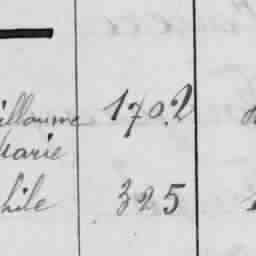 illaume 1702
Marie
hile 325